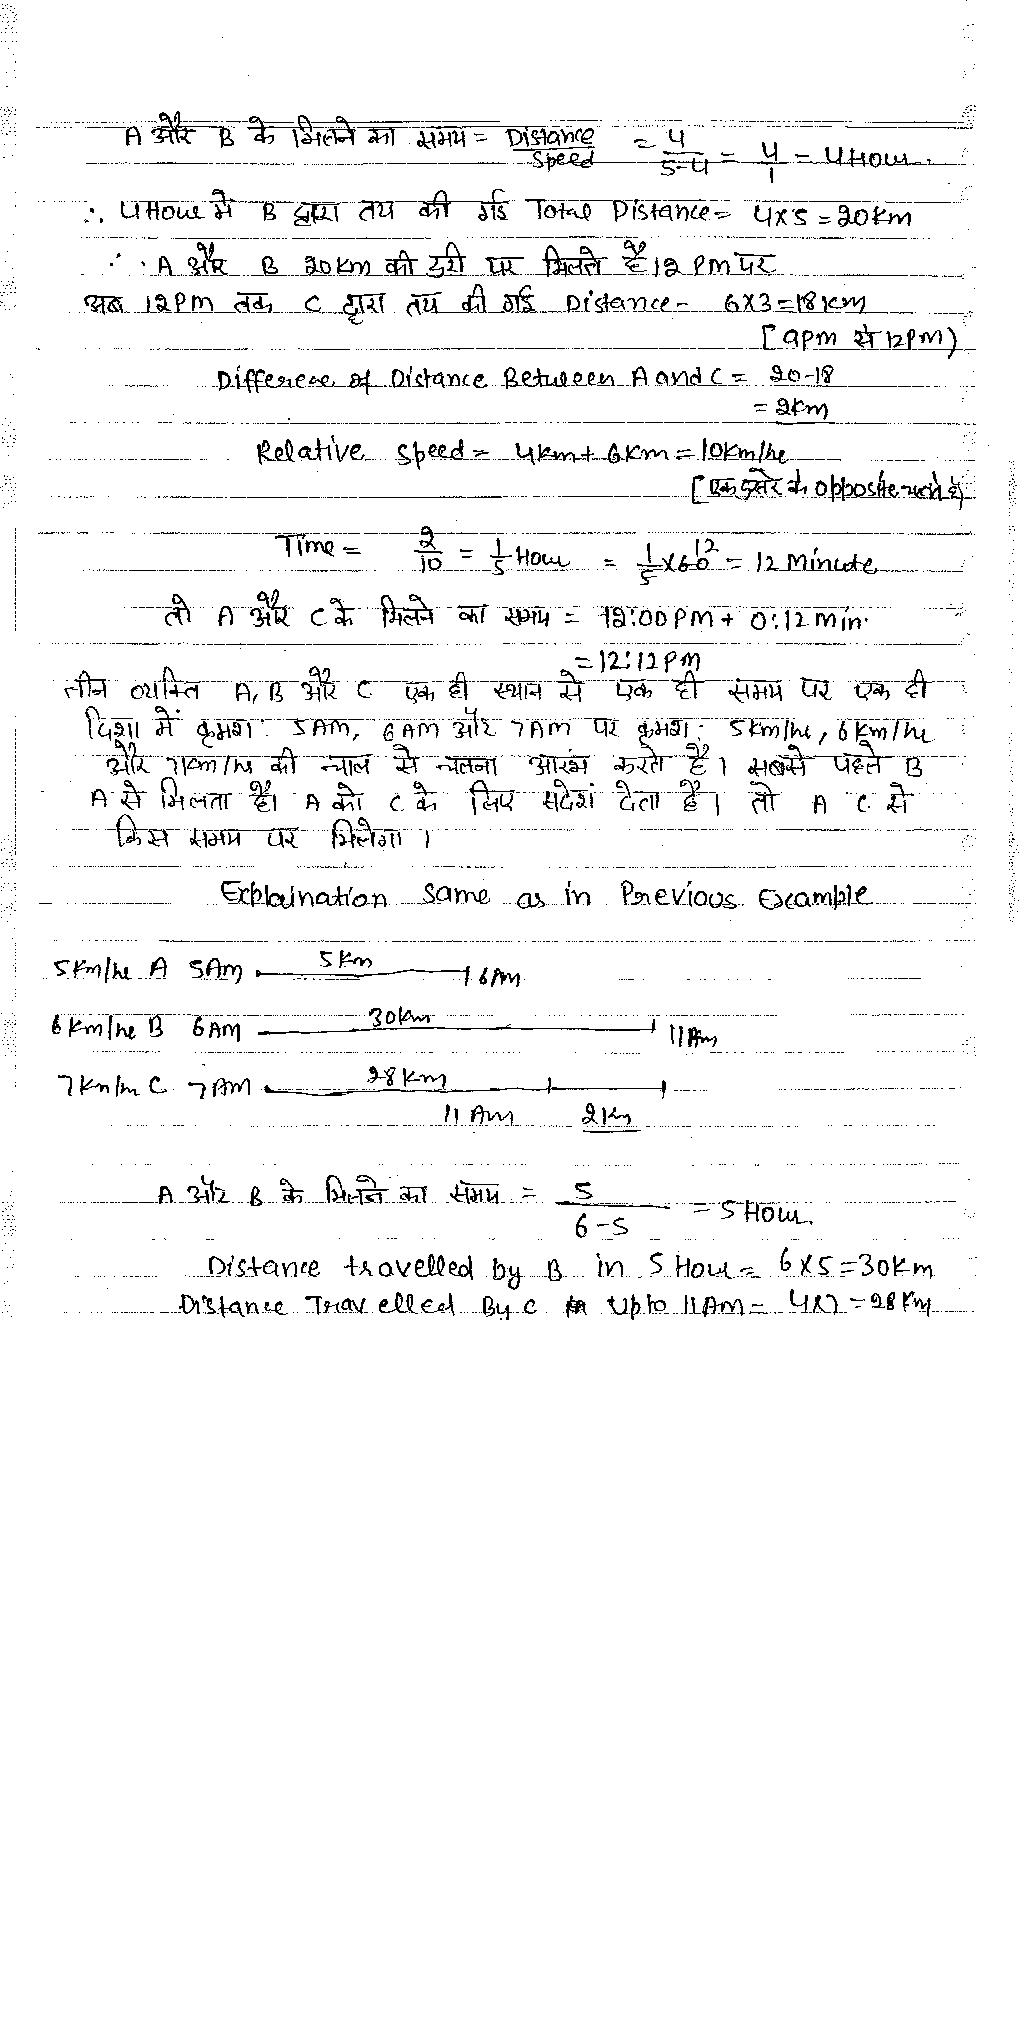 A और B के मिलने का समय = Distance/Speed = 4/5-4 = 4/1 = 4 Hour.
∴ 4 Hour में B द्वारा तय की गई Total Distance = 4x5 = 20 Km
∴ A और B 20 Km की दुरी पर मिलते है 12 PM पर
अब 12 PM तक C द्वारा तय की गई Distance - 6x3 = 18 Km
[9pm से 12PM)
Difference of Distance Between A and C = 20-18
= 2Km
Relative Speed = 4km + 6km = 10km/hr
[एक दुसरे के opposite
Time = 2/10 = 1/5 Hour = 1/5 x 60 12 = 12 Minute
तो A और C के मिलने का समय = 12:00PM + 0:12 min.
= 12:12PM
तीन व्यक्ति A, B और C एक ही स्थान से एक ही समय पर एक ही
दिशा में कृमश: 5AM, 6AM और 7AM पर कृमश: 5km/hr, 6km/hr
और 7km/hr की चाल से चलना आरंभ करते है। सबसे पहले B
A से मिलता है। A को C के लिए सदेशं देता है। तो A C से
किस समय पर मिलेगा।
Explaination same as in Previous Example
5Km/hr A 5Am 5 Km 6 Am
6km/hr B 6AM 30km 11 Am
7km/hr C 7AM 28 Km
11 Am 2 Km
A और B के मिलने का समय = 5/6-5 = 5 Hour.
Distance travelled by B in 5 Hour = 6x5 = 30Km
Distance Travelled By C Upto 11AM - 4x7 = 28 Km